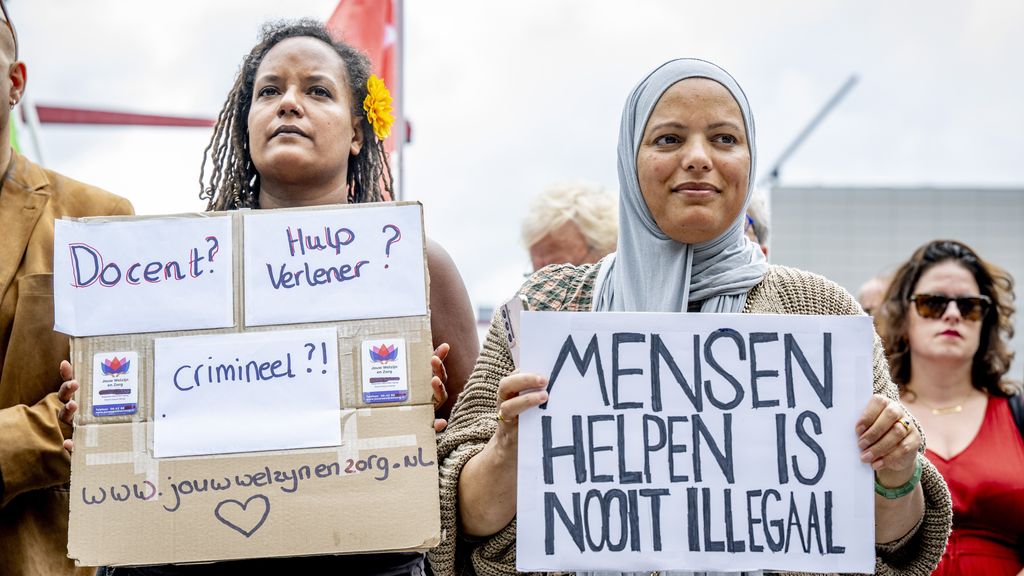 Docent?
Hulp
Verlener?
Crimineel?!
Jouw Welzijn
en Zorg
Jouw Welzijn
en Zorg
www.jouwwelzynenzorg.nl
MENSEN
HELPEN IS
NOOIT ILLEGAAL